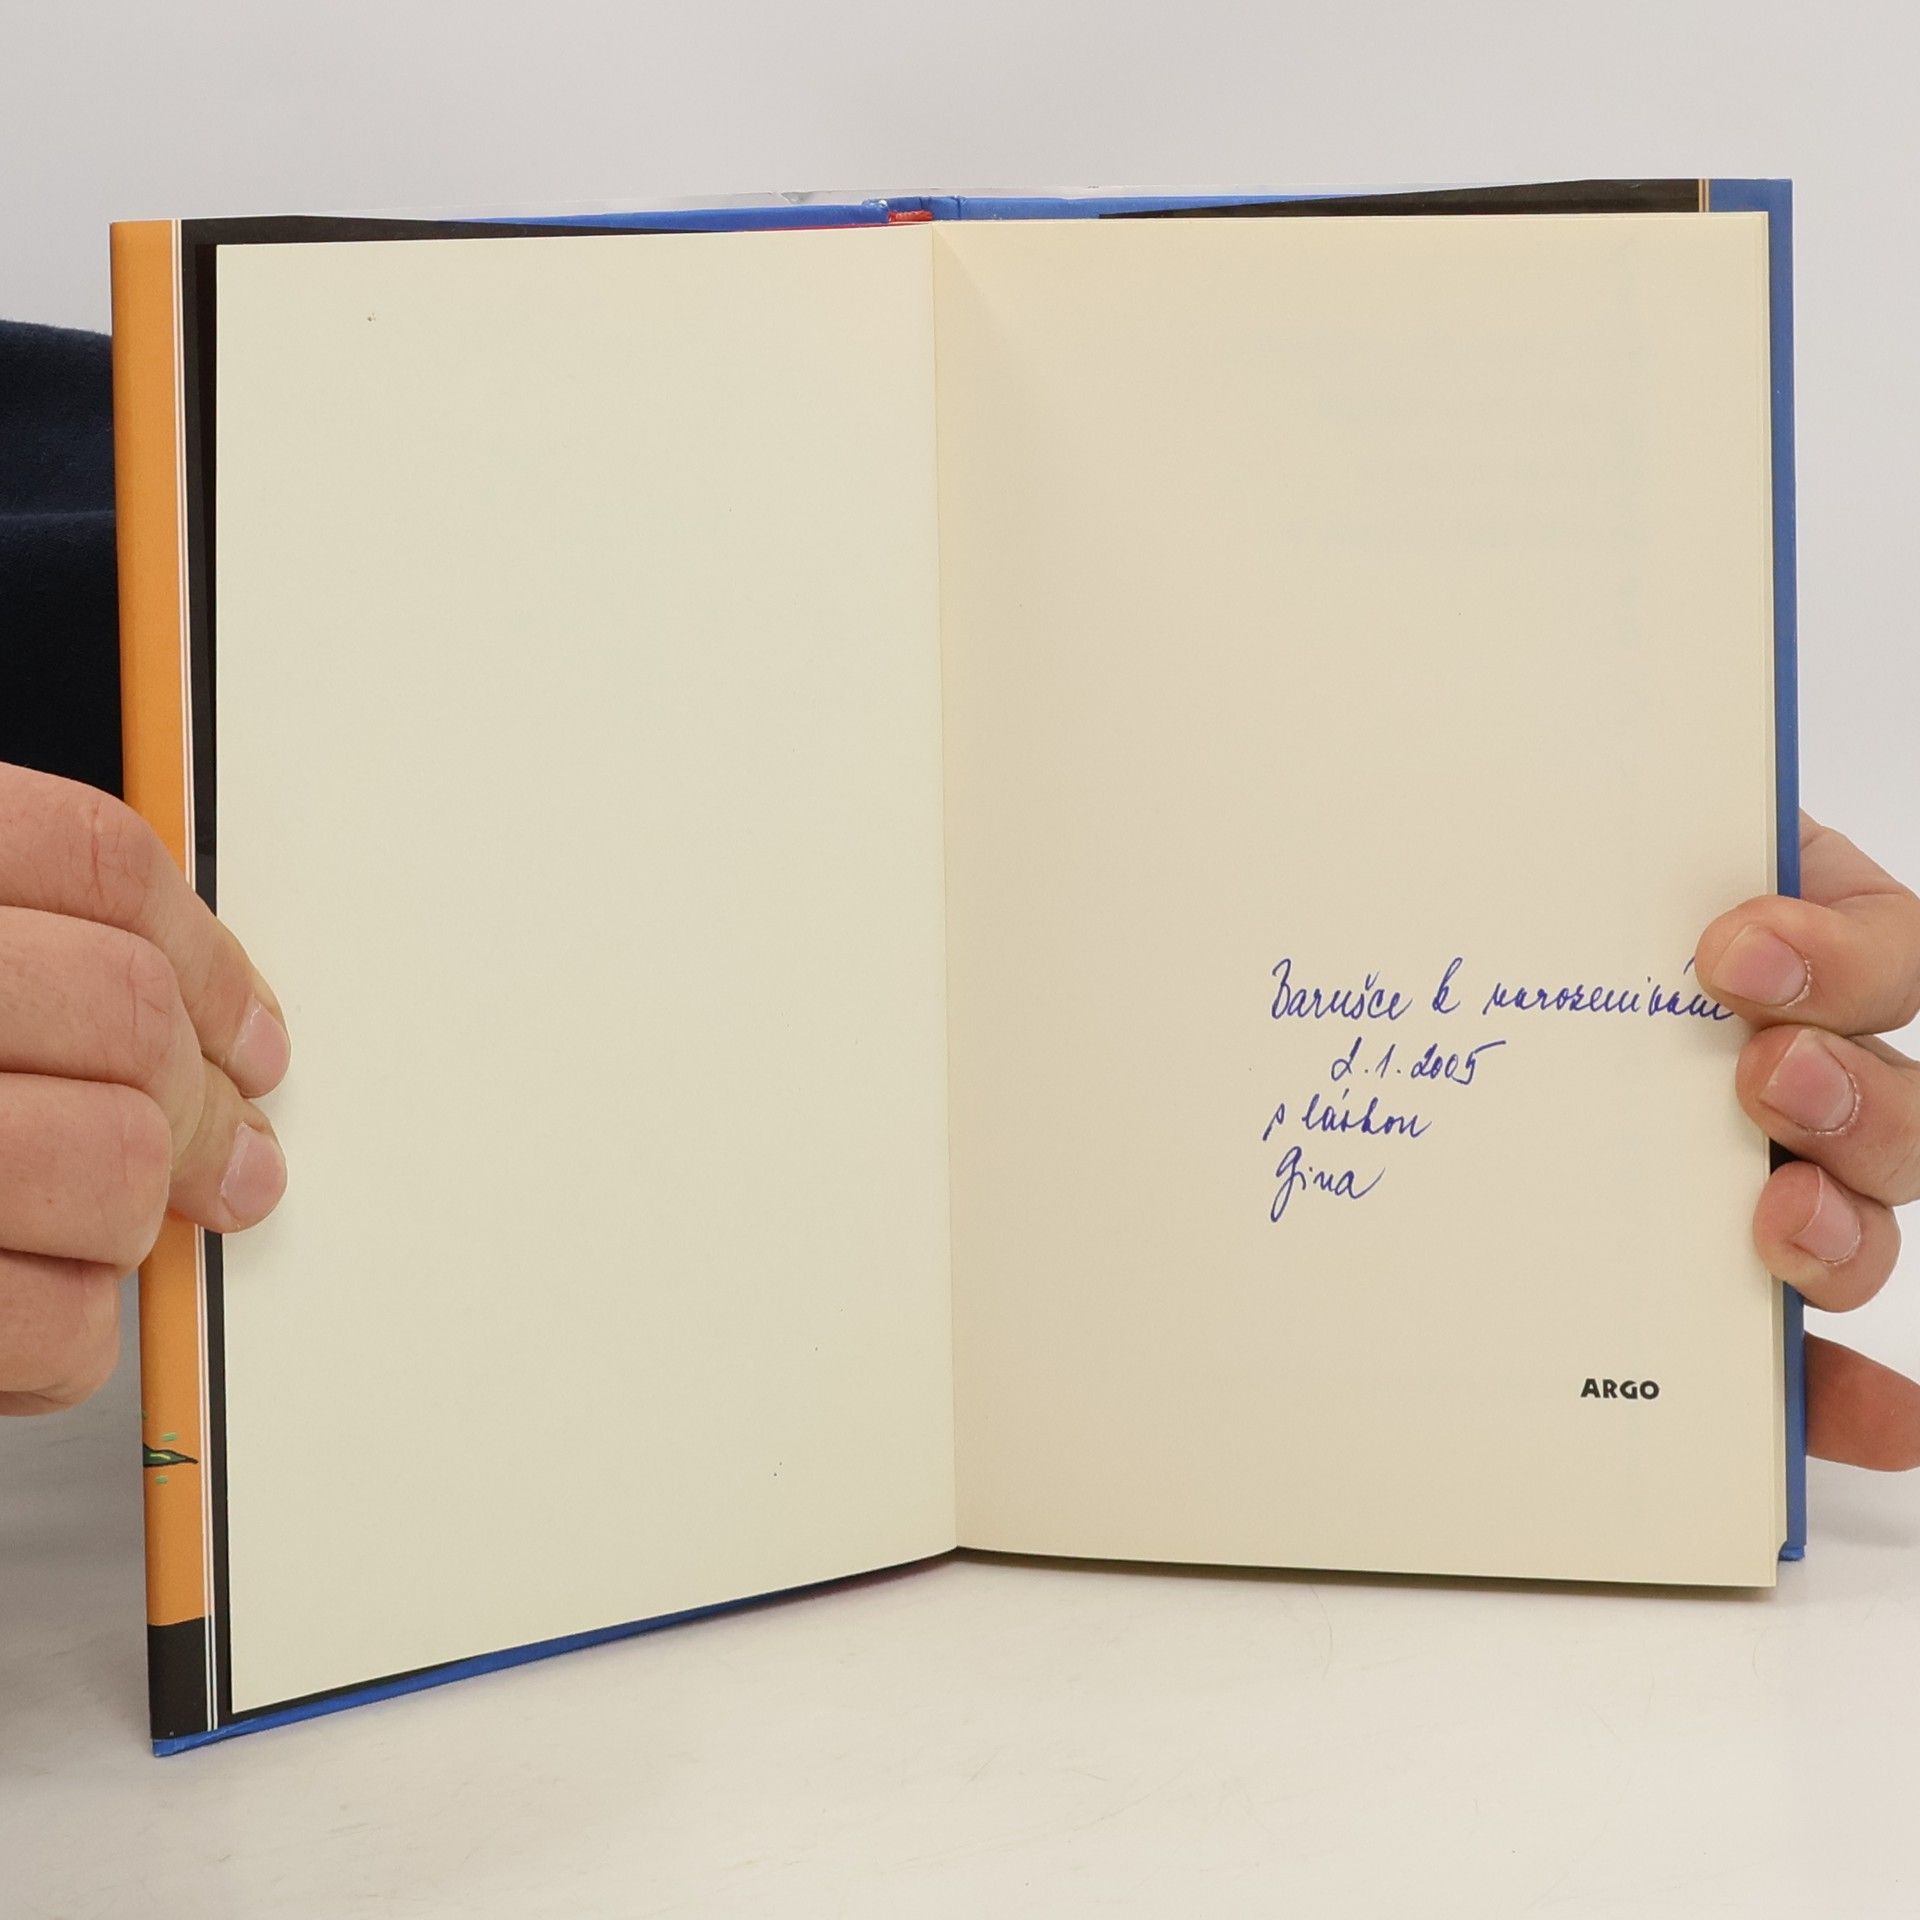 Barušce k narozeninám
2.1.2005
s láskou
Gina
ARGO